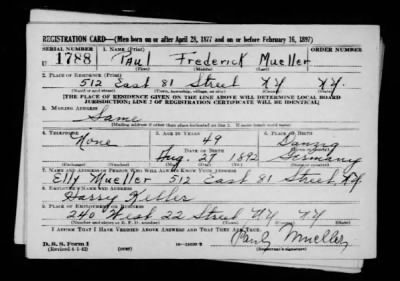 REGISTRATION CARD—(Men born on or after April 28, 1877 and on or before February 16, 1897)
SERIAL NUMBER 1. NAME (Print) ORDER NUMBER
U 1788 Paul Frederick Mueller
(First) (Middle) (Last)
2. PLACE OF RESIDENCE (Print)
512 East 81 Street N.Y. N.Y.
(Number and street) (Town, township, village, or city) (County) (State)
[THE PLACE OF RESIDENCE GIVEN ON THE LINE ABOVE WILL DETERMINE LOCAL BOARD
JURISDICTION; LINE 2 OF REGISTRATION CERTIFICATE WILL BE IDENTICAL]
3. MAILING ADDRESS
Same
[Mailing address if other than place indicated on line 2. If same insert word same]
4. TELEPHONE 5. AGE IN YEARS 6. PLACE OF BIRTH
None 49 Danzig
DATE OF BIRTH
Aug. 27 1892 Germany
(Exchange) (Number) (Mo.) (Day) (Yr.) (State or country)
7. NAME AND ADDRESS OF PERSON WHO WILL ALWAYS KNOW YOUR ADDRESS
Elly Mueller 512 East 81 Street, N.Y.
8. EMPLOYER'S NAME AND ADDRESS
Harry Keller
9. PLACE OF EMPLOYMENT OR BUSINESS
240 West 22 Street N.Y. N.Y.
(Number and street or R. F. D. number) (Town) (County) (State)
I AFFIRM THAT I HAVE VERIFIED ABOVE ANSWERS AND THAT THEY ARE TRUE.
D. S. S. Form 1
(Revised 4-1-42) (over) Paul Mueller
(Registrant's signature)